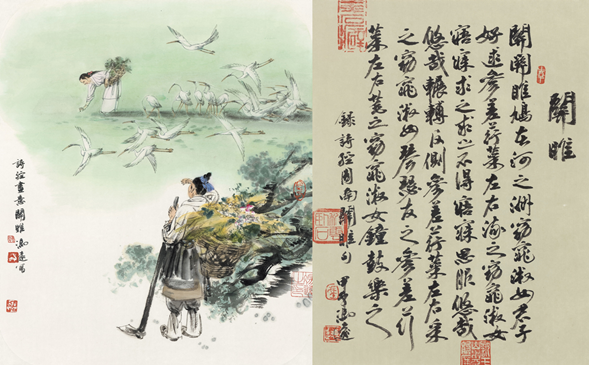 關雎
關關雎鳩在河之洲窈窕淑女君子
好逑參差荇菜左右流之窈窕淑女
寤寐求之求之不得寤寐思服悠哉
悠哉輾轉反側參差荇菜左右采
之窈窕淑女琴瑟友之參差荇
菜左右芼之窈窕淑女鐘鼓樂之
錄詩經周南關雎句 甲午
詩經畫意關雎